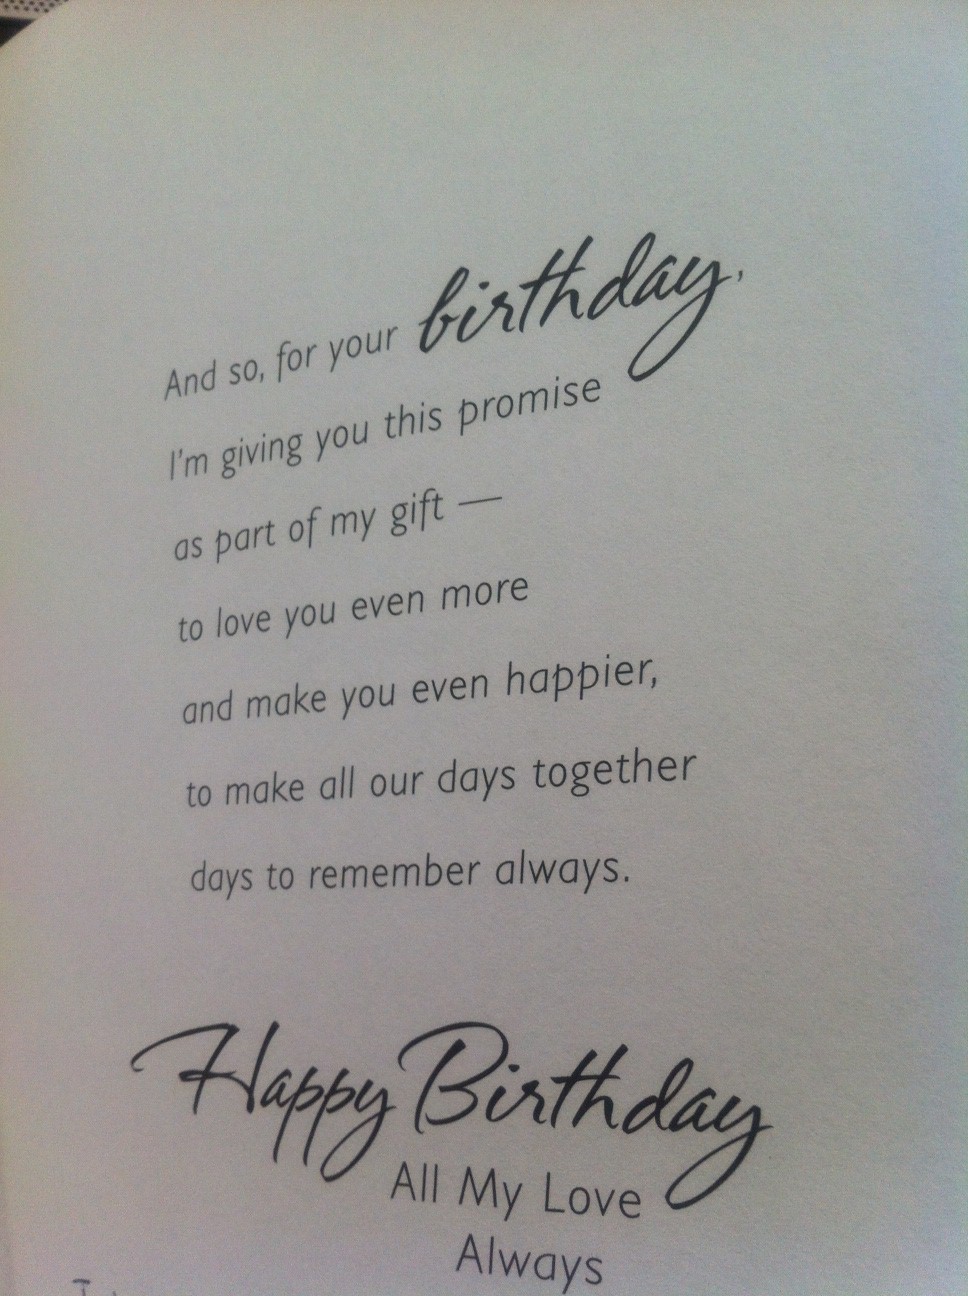 And so, for your birthday,
I'm giving you this promise
as part of my gift —
to love you even more
and make you even happier,
to make all our days together
days to remember always.
Happy Birthday
All My Love
Always